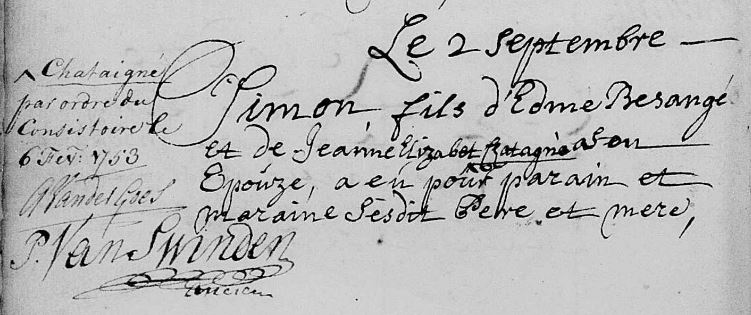 Le 2 Septembre
Simon, fils d'Edme Besangé
et de Jeanne Elizabet Chatagné a Son
Epouze, a eu pour parain et
maraine Sesdit Pere et mere,
^ Chataigné
par ordre du
Consistoire le
6 Fev: 1753
P. Van Swinden
Ancien